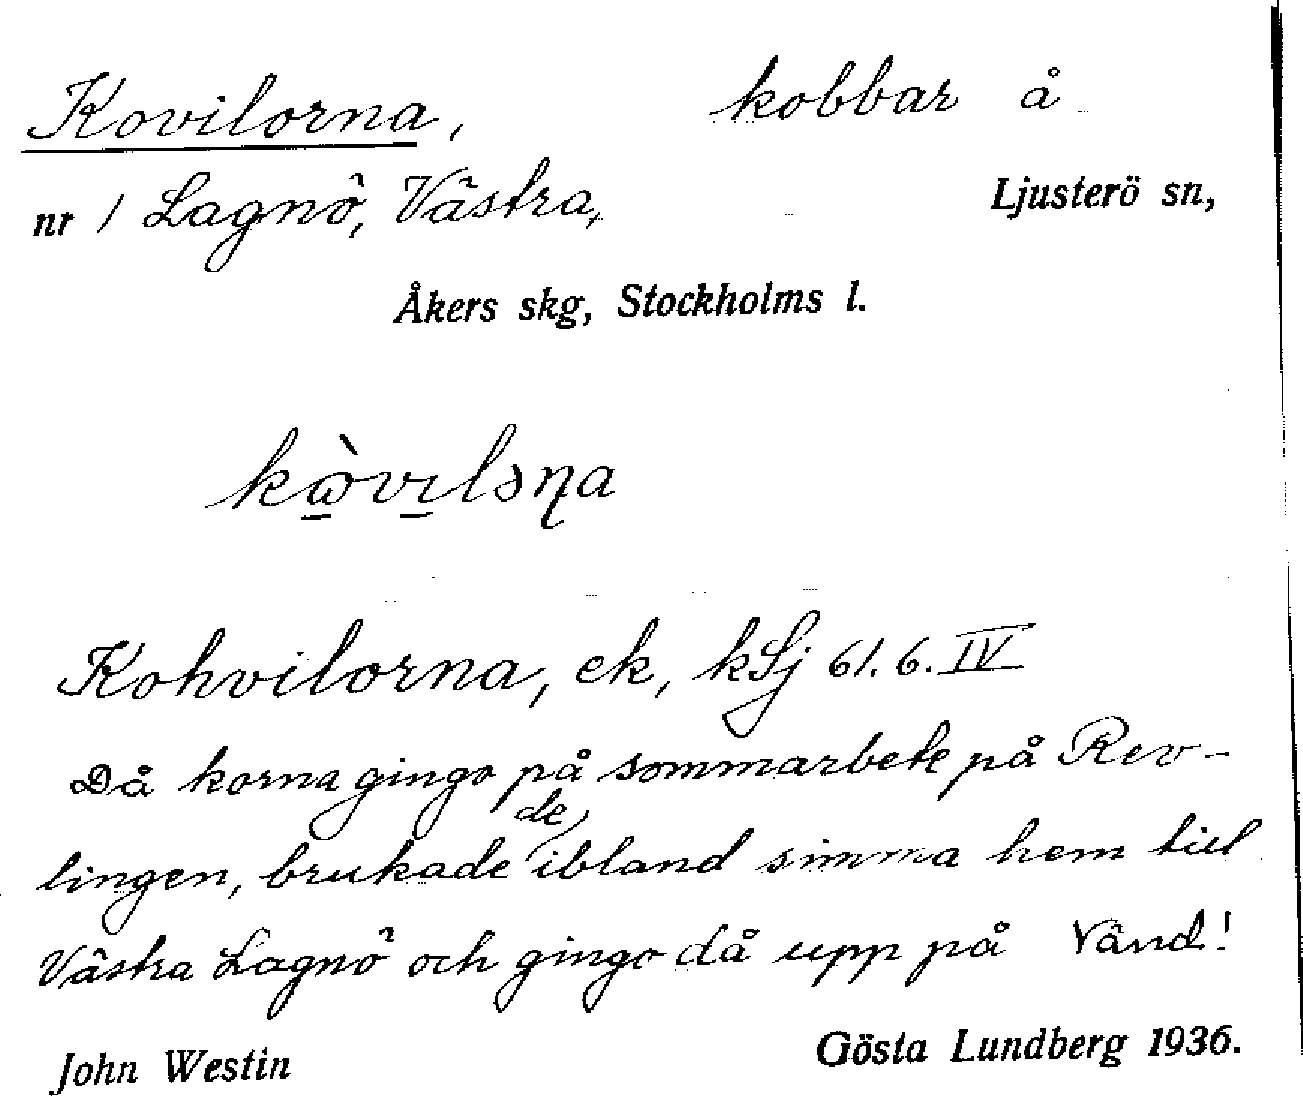 Kovilorna, kobbar å
nr 1 Lagnö, Västra, Ljusterö sn,
Åkers skg, Stockholms l.
kὼvɪlɔɳa
Kohvilorna, ek, kLj 61. 6. IV
Då korna gingo på sommarbete på Rev-
de
lingen, brukade ibland simma hem till
Västra Lagnö och gingo då upp på Vänd!
John Westin Gösta Lundberg 1936.